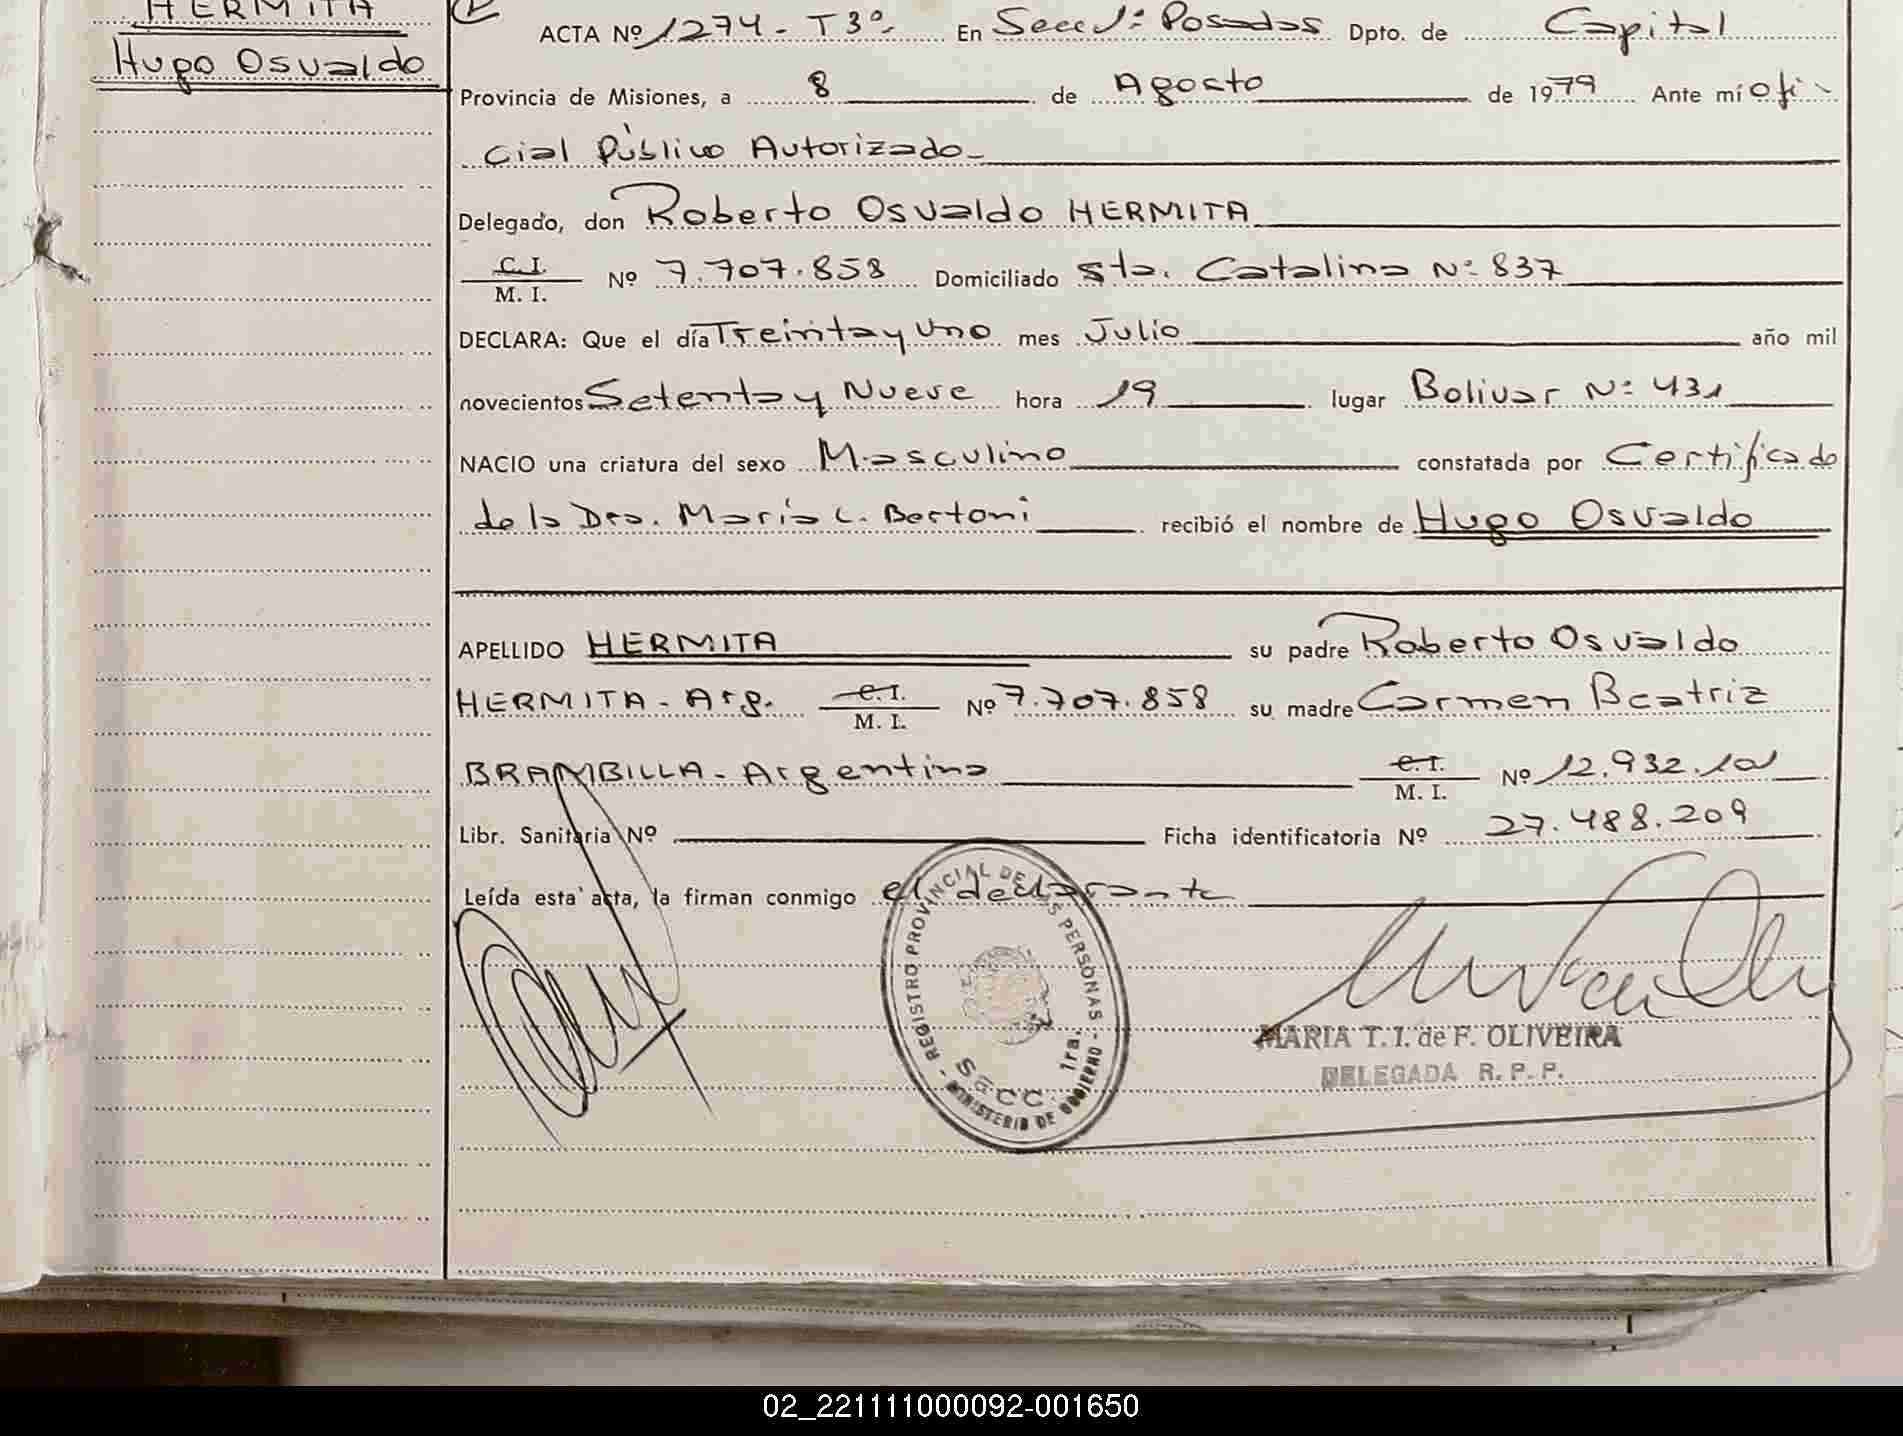 HERMITA
Hugo Osvaldo
ACTA Nº 1274 - T3º- En Secc 1ª Posadas Dpto. de Capital
Provincia de Misiones, a 8 de Agosto de 1979 Ante mí Ofi-
cial Público Autorizado-
Delegado, don Roberto Osvaldo HERMITA
C.I. M. I. Nº 7.707.858 Domiciliado Sta. Catalina Nº 837
DECLARA: Que el día Treinta y Uno mes Julio año mil
novecientos Setenta y Nueve hora 19 lugar Bolivar Nº 431
NACIO una criatura del sexo Masculino constatada por Certificado
de la Dra. María L. Bertoni recibió el nombre de Hugo Osvaldo
APELLIDO HERMITA su padre Roberto Osvaldo
HERMITA - Arg. C.I. M. I. Nº 7.707.858 su madre Carmen Beatriz
BRAMBILLA - Argentina C.I. M. I. Nº 12.932.101
Libr. Sanitaria Nº Ficha identificatoria Nº 27.488.209
Leída esta acta, la firman conmigo el declarante
REGISTRO PROVINCIAL DE LAS PERSONAS - MINISTERIO DE GOBIERNO -
Secc. 1ra.
MARIA T. I. de F. OLIVEIRA
DELEGADA R. P. P.
02_221111000092-001650